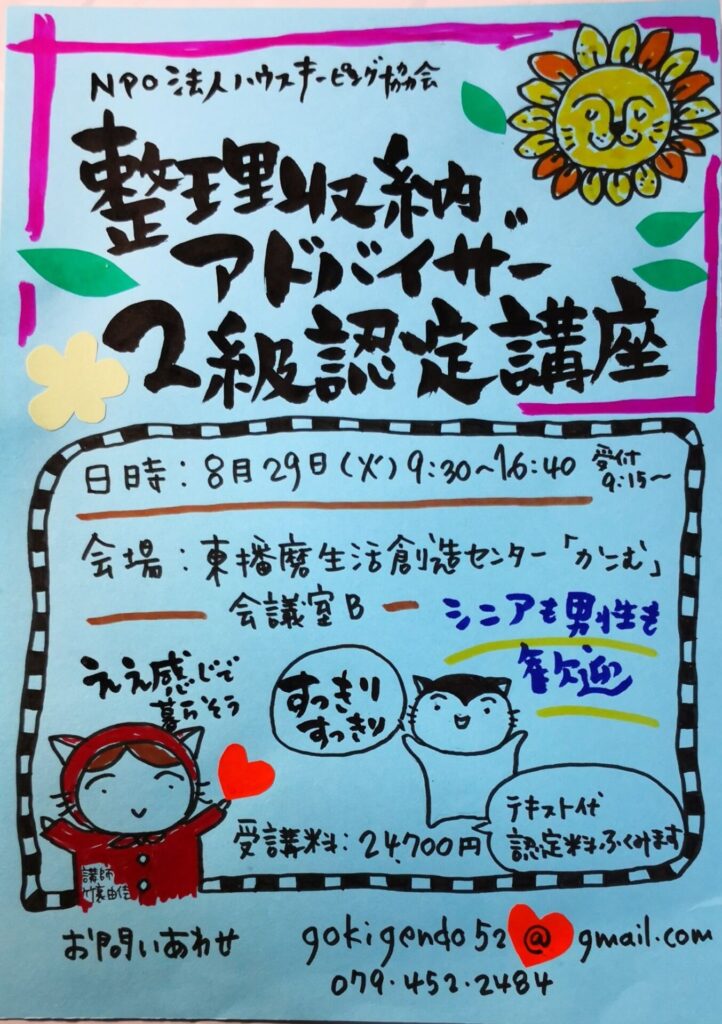 NPO法人ハウスキーピング協会
整理収納
アドバイザー
2級認定講座
日時：8月29日(火)9:30~16:40
受付
9:15~
会場：東播磨生活創造センター「かこむ」
会議室B
シニアも男性も
歓迎
ええ感じで
暮らそう
すっきり
すっきり
受講料：24,700円
テキスト代
認定料ふくみます
講師
由佳
お問いあわせ
gokigendo52@gmail.com
079・452・2484